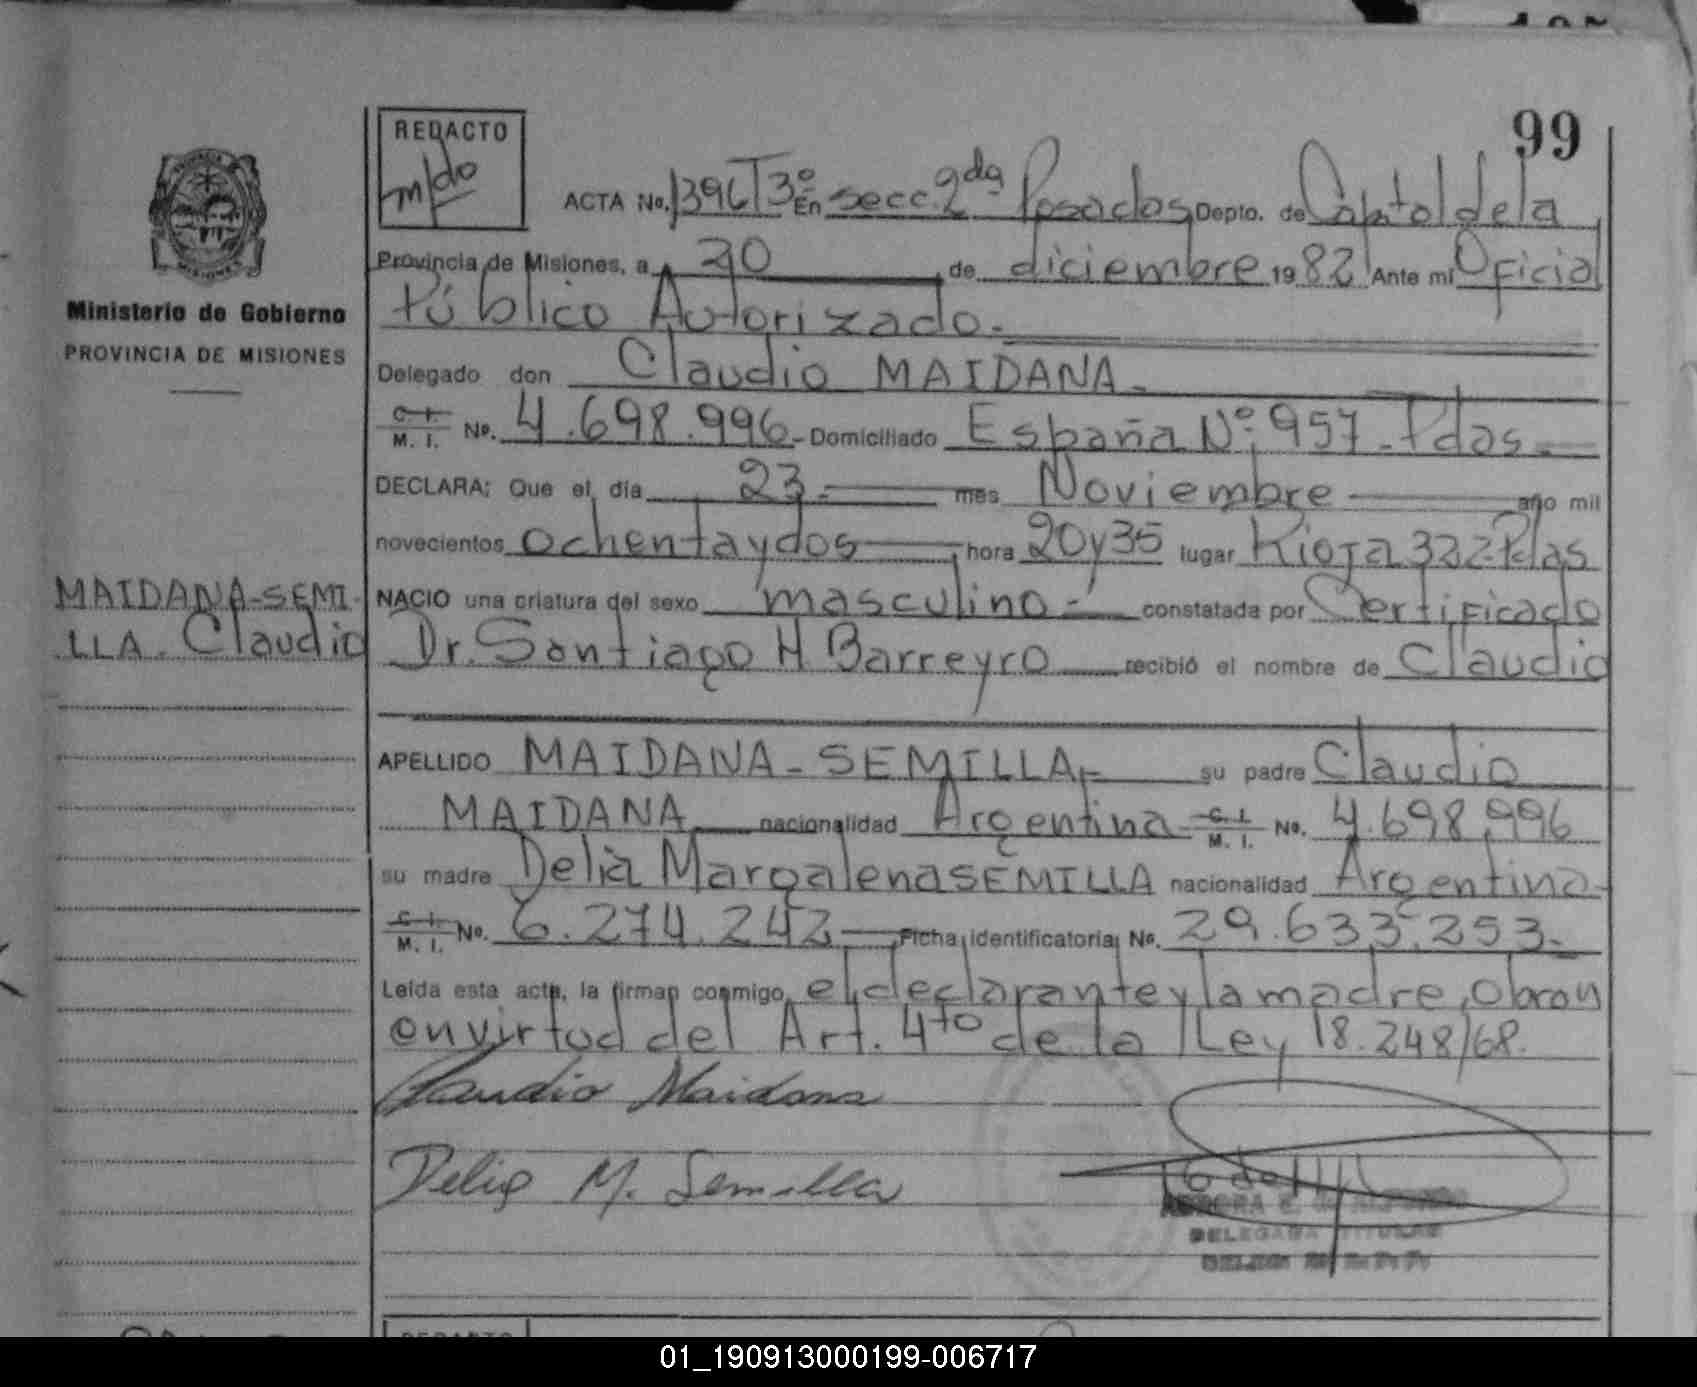 99
REDACTO
ACTA No. 1396 T3º En secc. 2da Posadas Depto. de Capital de la
Provincia de Misiones, a 30 de diciembre 1982 Ante mi Oficial
Público Autorizado.-
Ministerio de Gobierno
PROVINCIA DE MISIONES
Delegado don Claudio MAIDANA-
C. I.
M. I. No. 4.698.996- Domiciliado España Nº 957-Pdas-
DECLARA: Que el dia 23- mes Noviembre año mil
novecientos ochenta y dos hora 20 y 35 lugar Rioja 322-Pdas
MAIDANA-SEMI-
LLA. Claudio
NACIO una criatura del sexo masculino- constatada por Certificado
Dr. Santiago H. Barreyro recibió el nombre de Claudio
APELLIDO MAIDANA-SEMILLA- su padre Claudio
MAIDANA nacionalidad Argentina- C. I.
M. I. No. 4.698.996
su madre Delia Margalena SEMILLA nacionalidad Argentina-
C. I.
M. I. No. 6.274.242 Ficha identificatoria No. 29.633.253-
Leída esta acta, la firman conmigo, el declarante y la madre, obran
en virtud del Art. 4to de la Ley 18.248/68.
Claudio Maidana
Delia M. Semilla
DELEGADA TITULAR
REDACTO
01_190913000199-006717